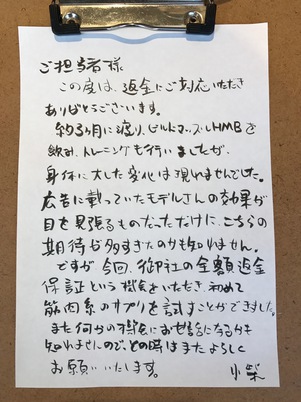 ご担当者様
この度は、返金にご対応いただき
ありがとうございます。
約3ヶ月に渡り、ビルドマッスルHMBを
飲み、トレーニングも行いましたが、
身体に大した変化は現れませんでした。
広告に載っていたモデルさんの効果が
目を見張るものだっただけに、こちらの
期待が多すぎたのかも知れません。
ですが今回、御社の全額返金
保証という機会をいただき、初めて
筋肉系のサプリを試すことができました。
また何かの機会にお世話になるかも
知れませんので、その時はまたよろしく
お願いいたします。
小柴